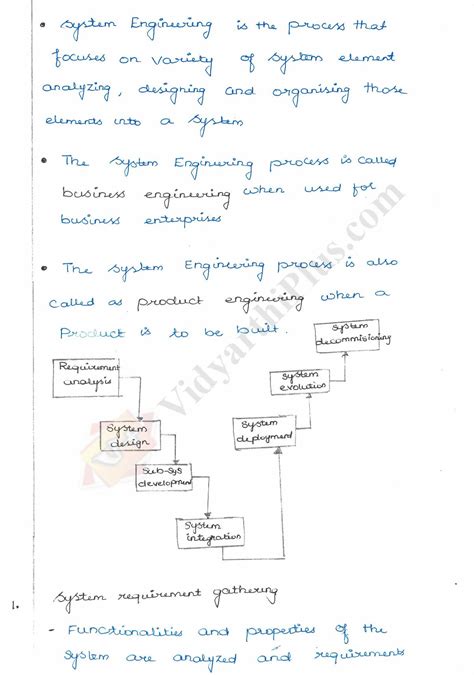 • System Engineering is the process that
focuses on variety of system element
analyzing, designing and organising those
elements into a system
• The System Engineering process is called
business engineering when used for
business enterprises
• The System Engineering process is also
called as product engineering when a
Product is to be built.
System
decommisioning
Requirement
analysis
System
evolution
System
design
System
deployment
Sub-sys
development
System
integration
1. System requirement gathering
- Functionalities and properties of the
System are analyzed and requirements
VidyarthiPlus.com